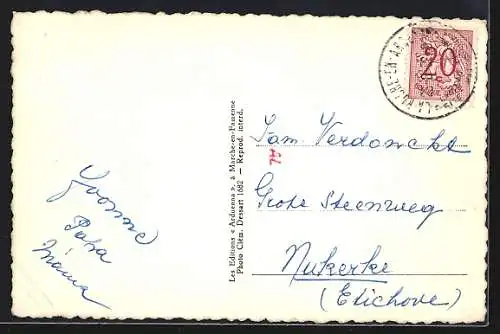 Yvonne
Papa
Mama
Les Editions « Arduenna », à Marche-en-Famenne
Photo Clém. Dessart 1682 — Reprod. interd.
20
Fam Verdonckt
Grote Steenweg
Nukerke
(Etichove)